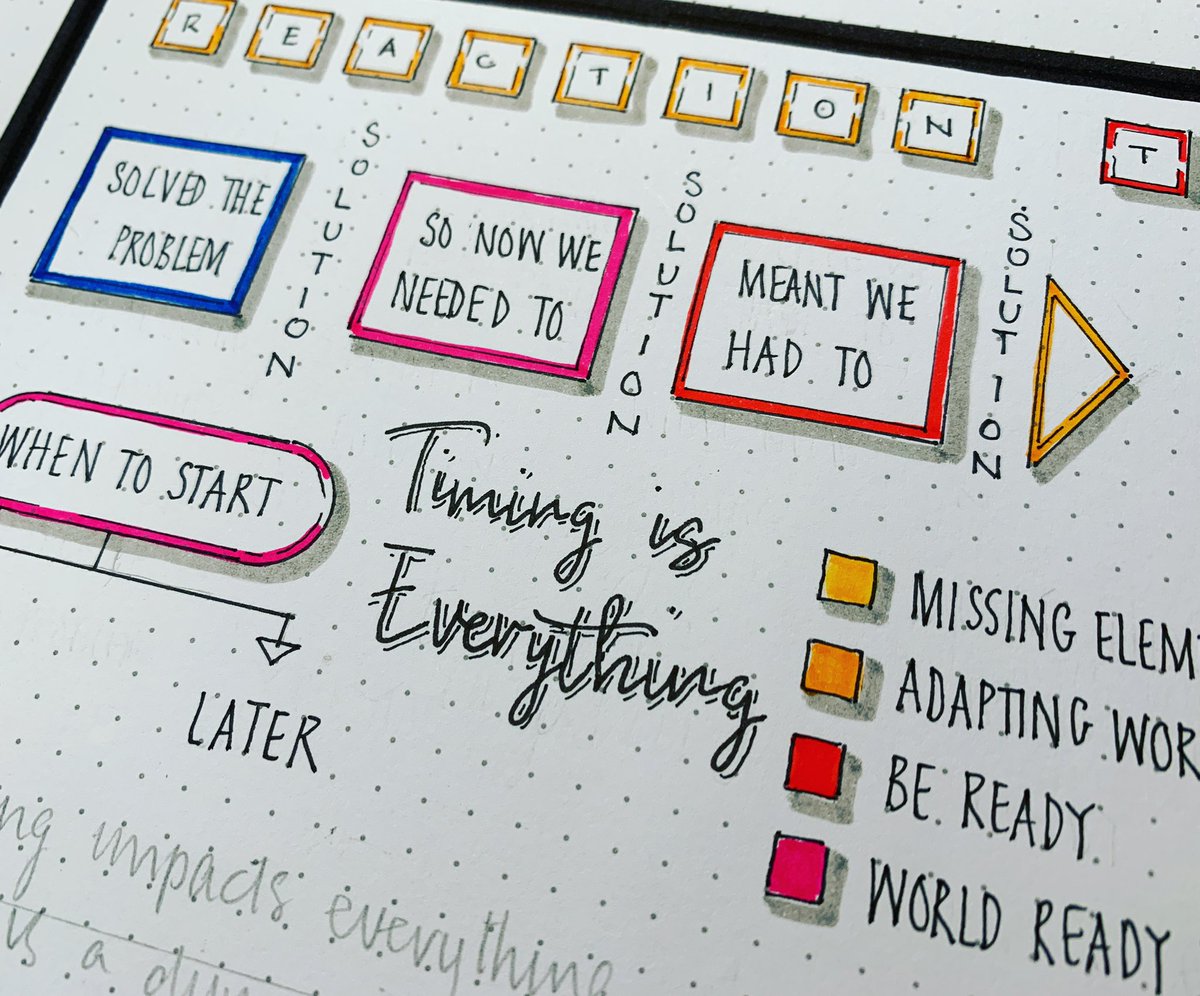 REACTION T
SOLVED THE
PROBLEM
SOLUTION
SO NOW WE
NEEDED TO
SOLUTION
MEANT WE
HAD TO
SOLUTION
WHEN TO START
LATER
Timing is
Everything
MISSING ELEM
ADAPTING WOR
BE READY
WORLD READY
ng impacts everything
is a